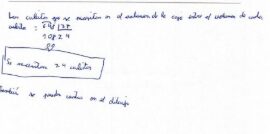 Los cubitos que se necesitan es el volumen de la caja entre el volumen de cada
cubito : 648 | 27
108 24
00
Se necesitan 24 cubitos
También se puede contar en el dibujo